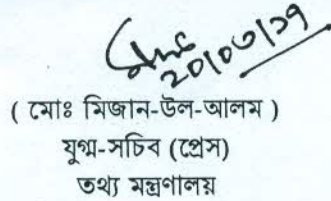 ২০/০৩/১৭
( মোঃ মিজান-উল-আলম )
যুগ্ম-সচিব (প্রেস)
তথ্য মন্ত্রণালয়